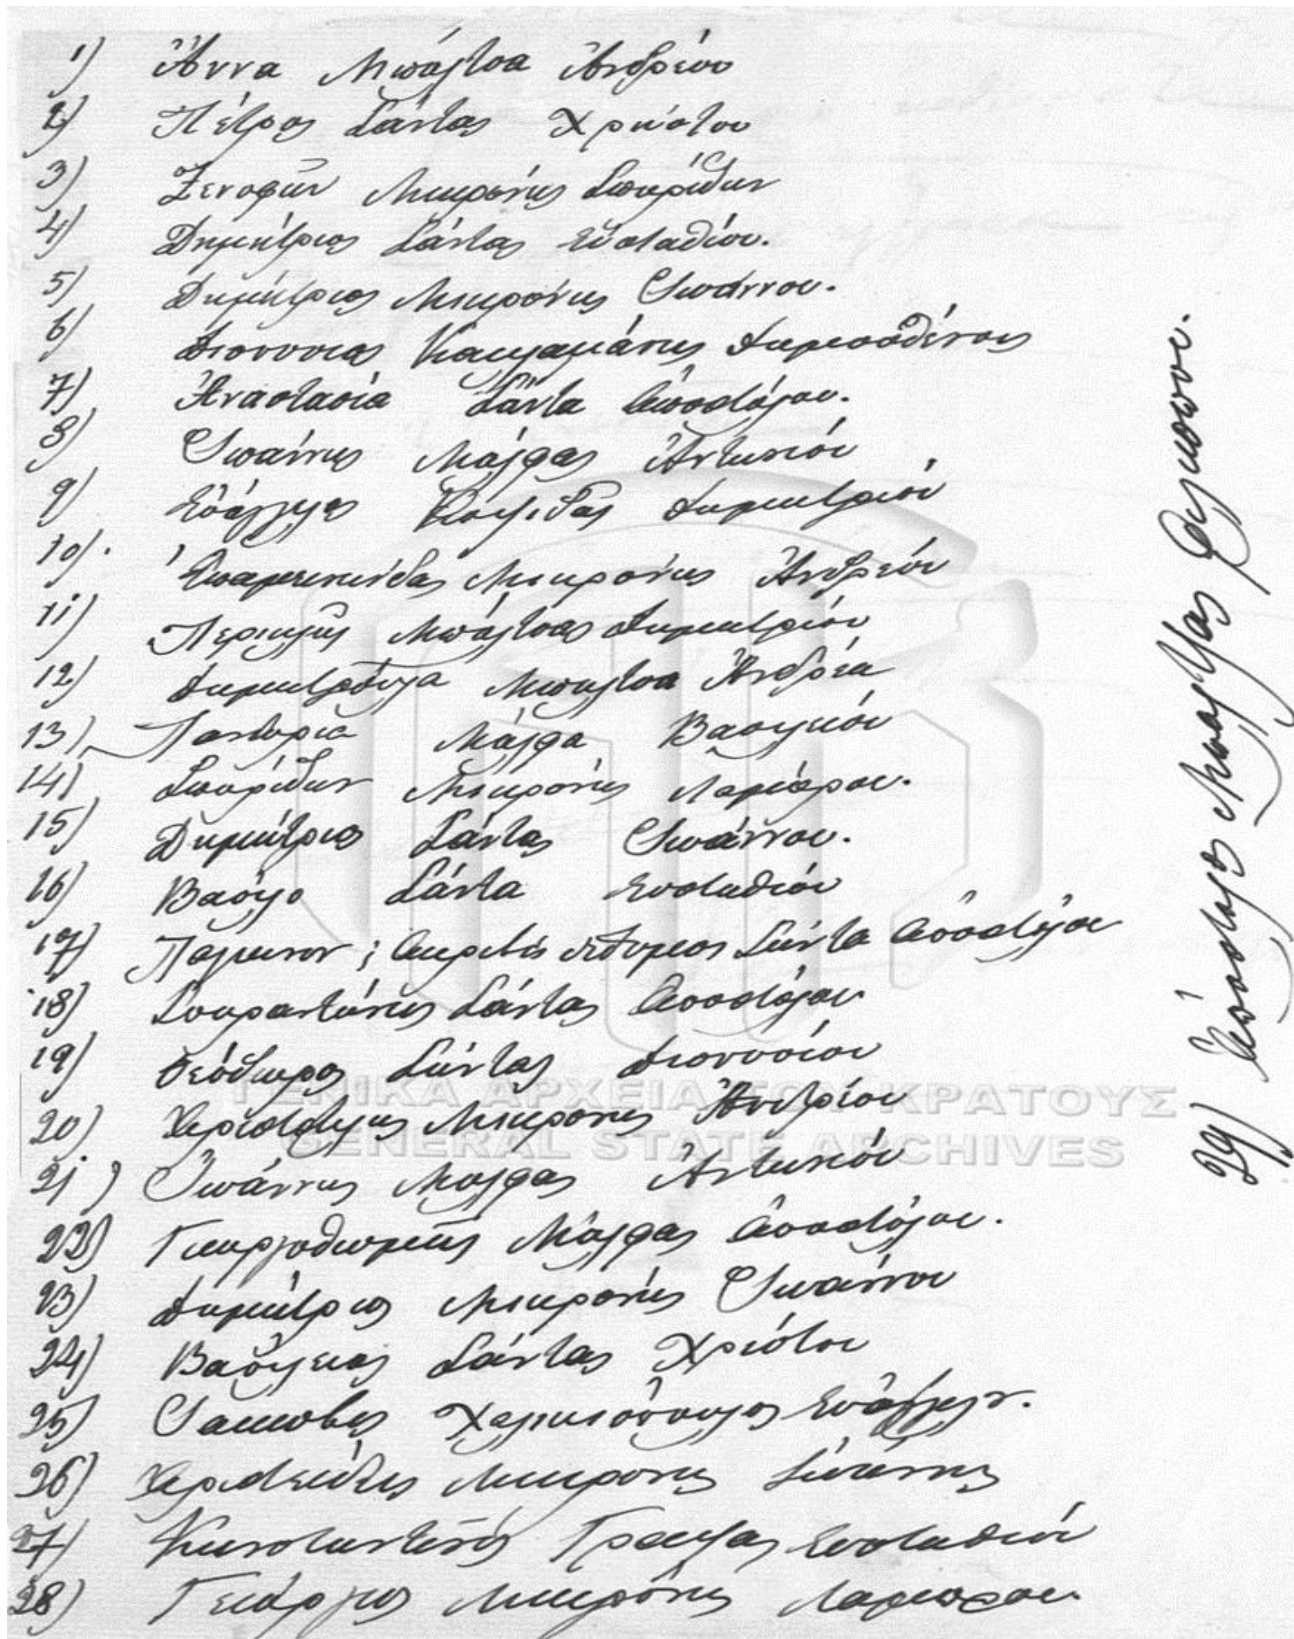 1) Ἄννα Μπάλτσα Ἀνδρέου
2) Πέτρος Σάντας Χρήστου
3) Ξενοφῶν Μικρώνης Σπυρίδων
4) Δημήτριος Σάντας Εὐσταθίου.
5) Δημήτριος Μικρώνης Ἰωάννου.
6) Διονύσιος Δημοσθένους
7) Ἀναστασία Σάντα Ἀποστόλου.
8) Ἰωάννης Μάλφας Ἀντωνίου
9) Εὐάγγελος Δημητρίου
10) Ἐπαμεινώνδας Μικρώνης Ἀνδρέου
11) Περικλῆς Μπάλτσας Δημητρίου
12) Δημητρούλα Μπάλτσα Ἀνδρέα
13) Πανωρια Μάλφα Βασιλείου
14) Σπυρίδων Μικρώνης Λάμπρου.
15) Δημήτριος Σάντας Ἰωάννου.
16) Βασίλω Σάντα Ευσταθίου
17) Σάντα Ἀποστόλου
18) Σάντας Ἀποστόλου
19) Θεόδωρος Σάντας Διονυσίου
20) Ἀριστοτέλης Μικρώνης Ἀνδρέου
21) Ἰωάννης Μάλφας Ἀντωνίου
22) Μάλφας Ἀποστόλου.
23) Δημήτριος Μικρώνης Ἰωάννου
24) Βασίλειος Σάντας Χρίστου
25) Ἰάκωβος Χαλικιόπουλος Ευάγγελου.
26) Ἀριστείδης Μικρώνης
27) Κωνσταντῖνος Ευσταθίου
28) Γεώργιος Μικρώνης Λάμπρου.
29) Ἀπόστολος Μπάλτσας Φιλίππου.
ΓΕΝΙΚΑ ΑΡΧΕΙΑ ΤΟΥ ΚΡΑΤΟΥΣ
GENERAL STATE ARCHIVES